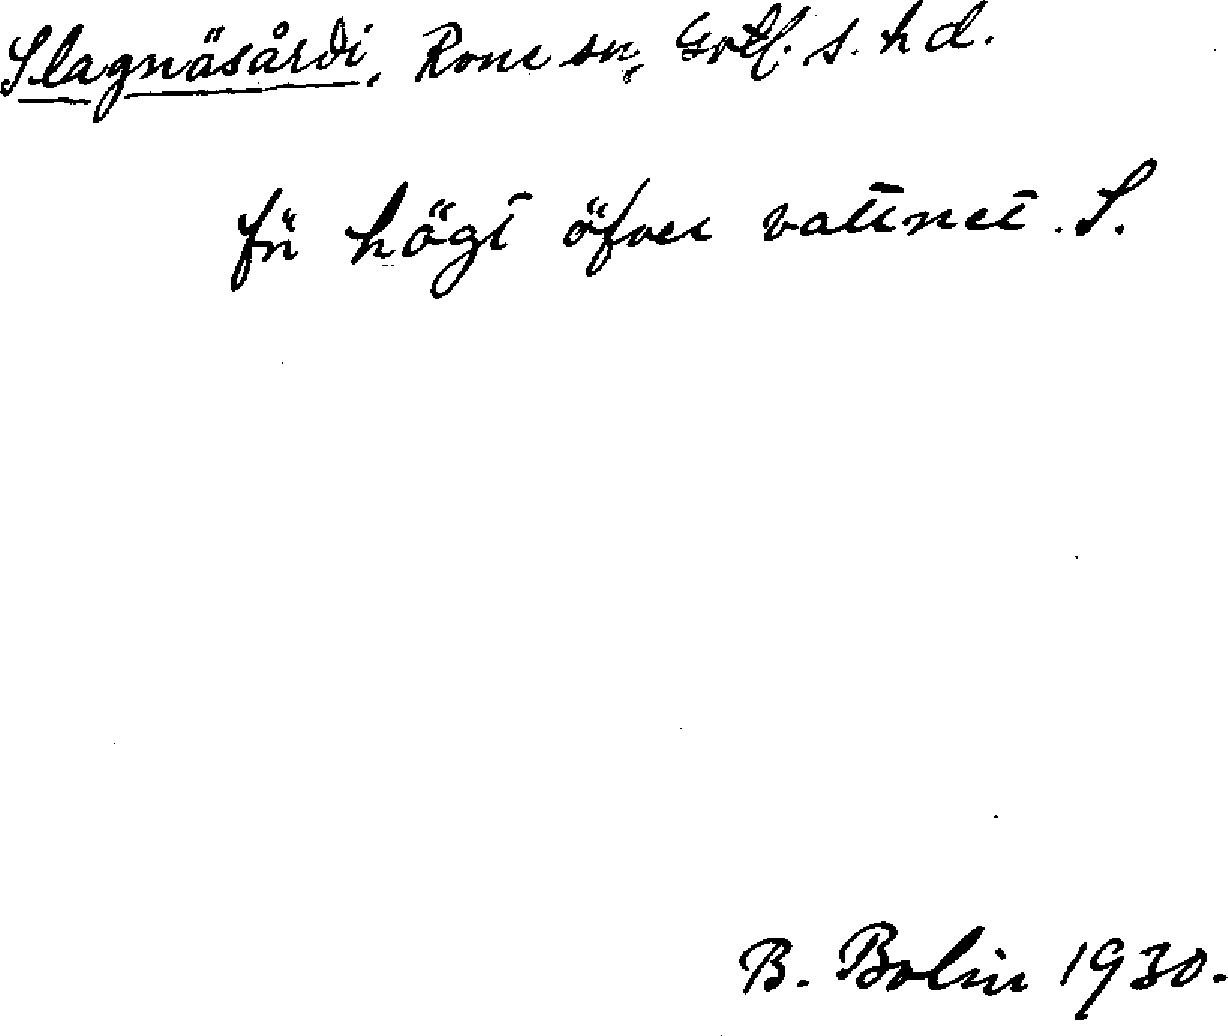 Slagnäsårdi, Rone sn, Gotl. s. hd.
för högt öfver vattnet. S.
B. Bolin 1930.